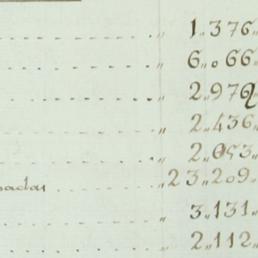 " 1.376"
6„066„
2„972„
" 2„436„
" 2„053„
padas " 23„209„
" 3„131„
" 2„112„